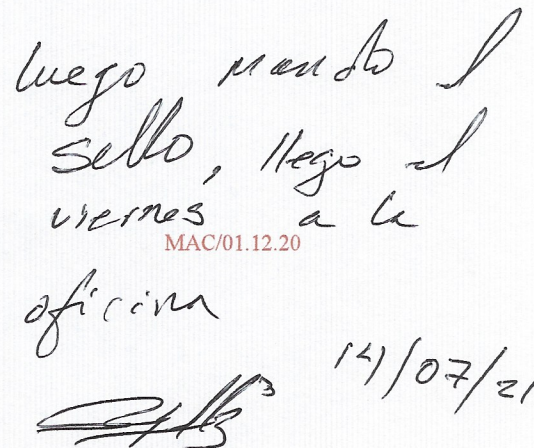 luego mando el
sello, llego el
viernes a la
MAC/01.12.20
oficina
14/07/21